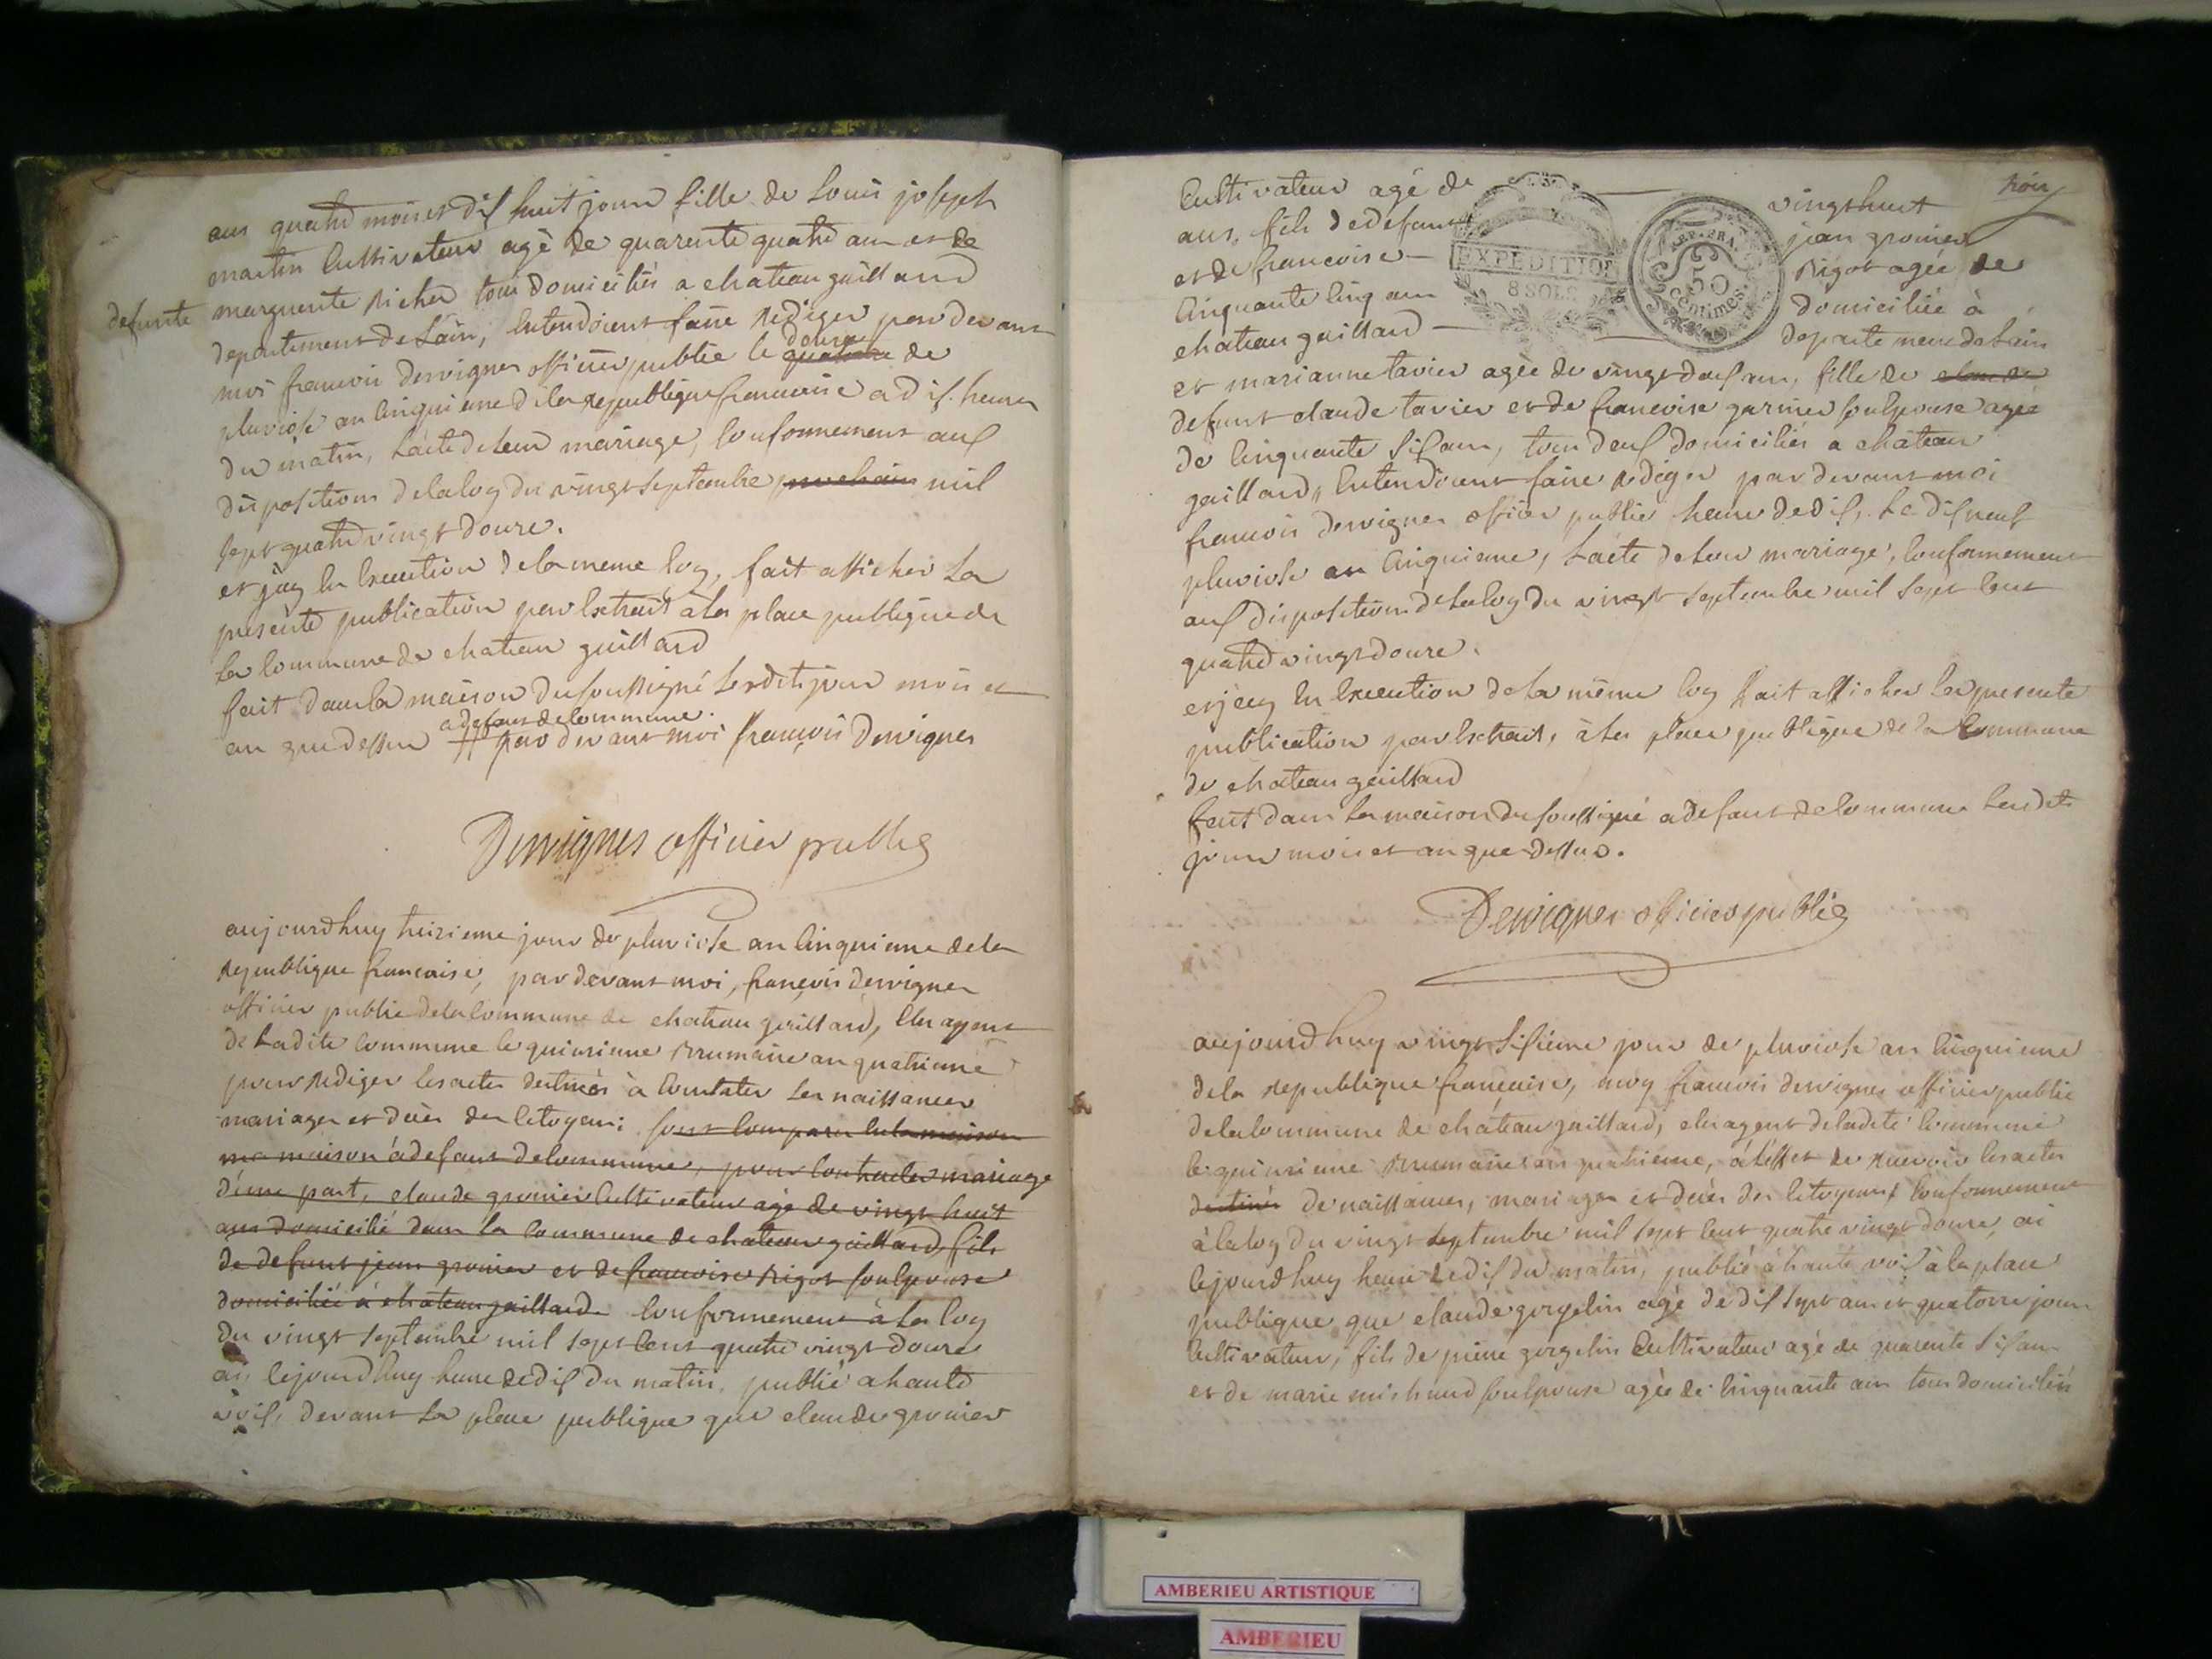 ans quatre mois et dix huit jours fille de Louis joseph
martin Cultivateur agé de quarente quatre ans et de
defunte marguerite Richer tous domiciliés a chateau gaillard
departement de Lain, Entendoient faire Rediger par devant
moi francois Dervignes officier public le quatorze douze de
pluviose an Cinquieme de la republique francaise a dix heures
du matin, Lacte de leur mariage, Conformement aux
dispositions de la loy du vingt septembre prochain mil
sept quatre vingt douze.
et j'ay En Execution de la meme loy, fait afficher La
presente publication par Extrait à la place publique de
La Commune de chateau gaillard
fait dans la maison du soussigné Lesdits jour mois et
a defaut de Commune.
an que dessus par devant moi francois Dervignes
Dervignes officier public
aujourdhuy treizieme jour de pluviose an Cinquieme de la
Republique francaise, par devant moi, françois dervignes
officier public de la Commune de chateau gaillard, Elu agent
de Ladite Commune le quinzieme Brumaire an quatrieme
pour Rediger les actes destinés à Constater Les naissances
mariages et decès des Citoyens; sont Comparu En la maison
ma maison à defaut de Commune, pour Contracter mariage
d'une part, claude gronier Cultivateur agé de vingt huit
ans domicilié dans la Commune de chateau gaillard, fils
de defunt jean gronier et de francoise Rigot son Epouse
domiciliée à château gaillard. Conformement à La loy
du vingt septembre mil sept Cent quatre vingt douze
ai, Cejourdhuy heure de dix du matin, publié a haute
voix, devant La place publique que claude gronier
Cultivateur agé de vingt huit
ans, fils de defunt jean gronier
et de francoise Rigot agée de
Cinquante Cinq ans domiciliée à
chateau gaillard departement de Lain
EXPEDITION
8 SOLS
REP. FRA.
50
centimes.
et marianne tavier agée de vingt deux ans, fille de claude
defunt claude tavier et de francoise garnier son Epouse agée
de Cinquante six ans, tous deux domiciliés a château
gaillard, Entendoient faire rediger par devant moi
francois dervignes officier public heure de dix, Le dix neuf
pluviose an Cinquieme, Lacte de Leur mariage, Conformement
aux dispositions de la loy du vingt septembre mil sept Cent
quatre vingt douze.
et j'ay En Execution de la même loy fait afficher La presente
publication par Extrait, à La place publique de la Commune
de chateau gaillard
fait dans La maison du soussigné a defaut de Commune Lesdits
jour mois et an que dessus.
Dervignes officier public
aujourdhuy vingt sixieme jour de pluviose an Cinquieme
de la republique française, moy francois dervignes officier public
de la Commune de château gaillard, elu agent de ladite Commune
le quinzieme Brumaire an quatrieme, à l'effet de recevoir les actes
destinés de naissances, mariages et decès des Citoyens, Conformement
à la loy du vingt septembre mil sept Cent quatre vingt douze, ai
Cejourdhuy heure de dix du matin, publié à haute voix à la place
publique que claude gorgelin agé de dix sept ans et quatorze jours
Cultivateur, fils de pierre gorgelin Cultivateur agé de quarente six ans
et de marie michaud son Epouse agée de Cinquante ans tous domiciliés
AMBERIEU ARTISTIQUE
AMBERIEU